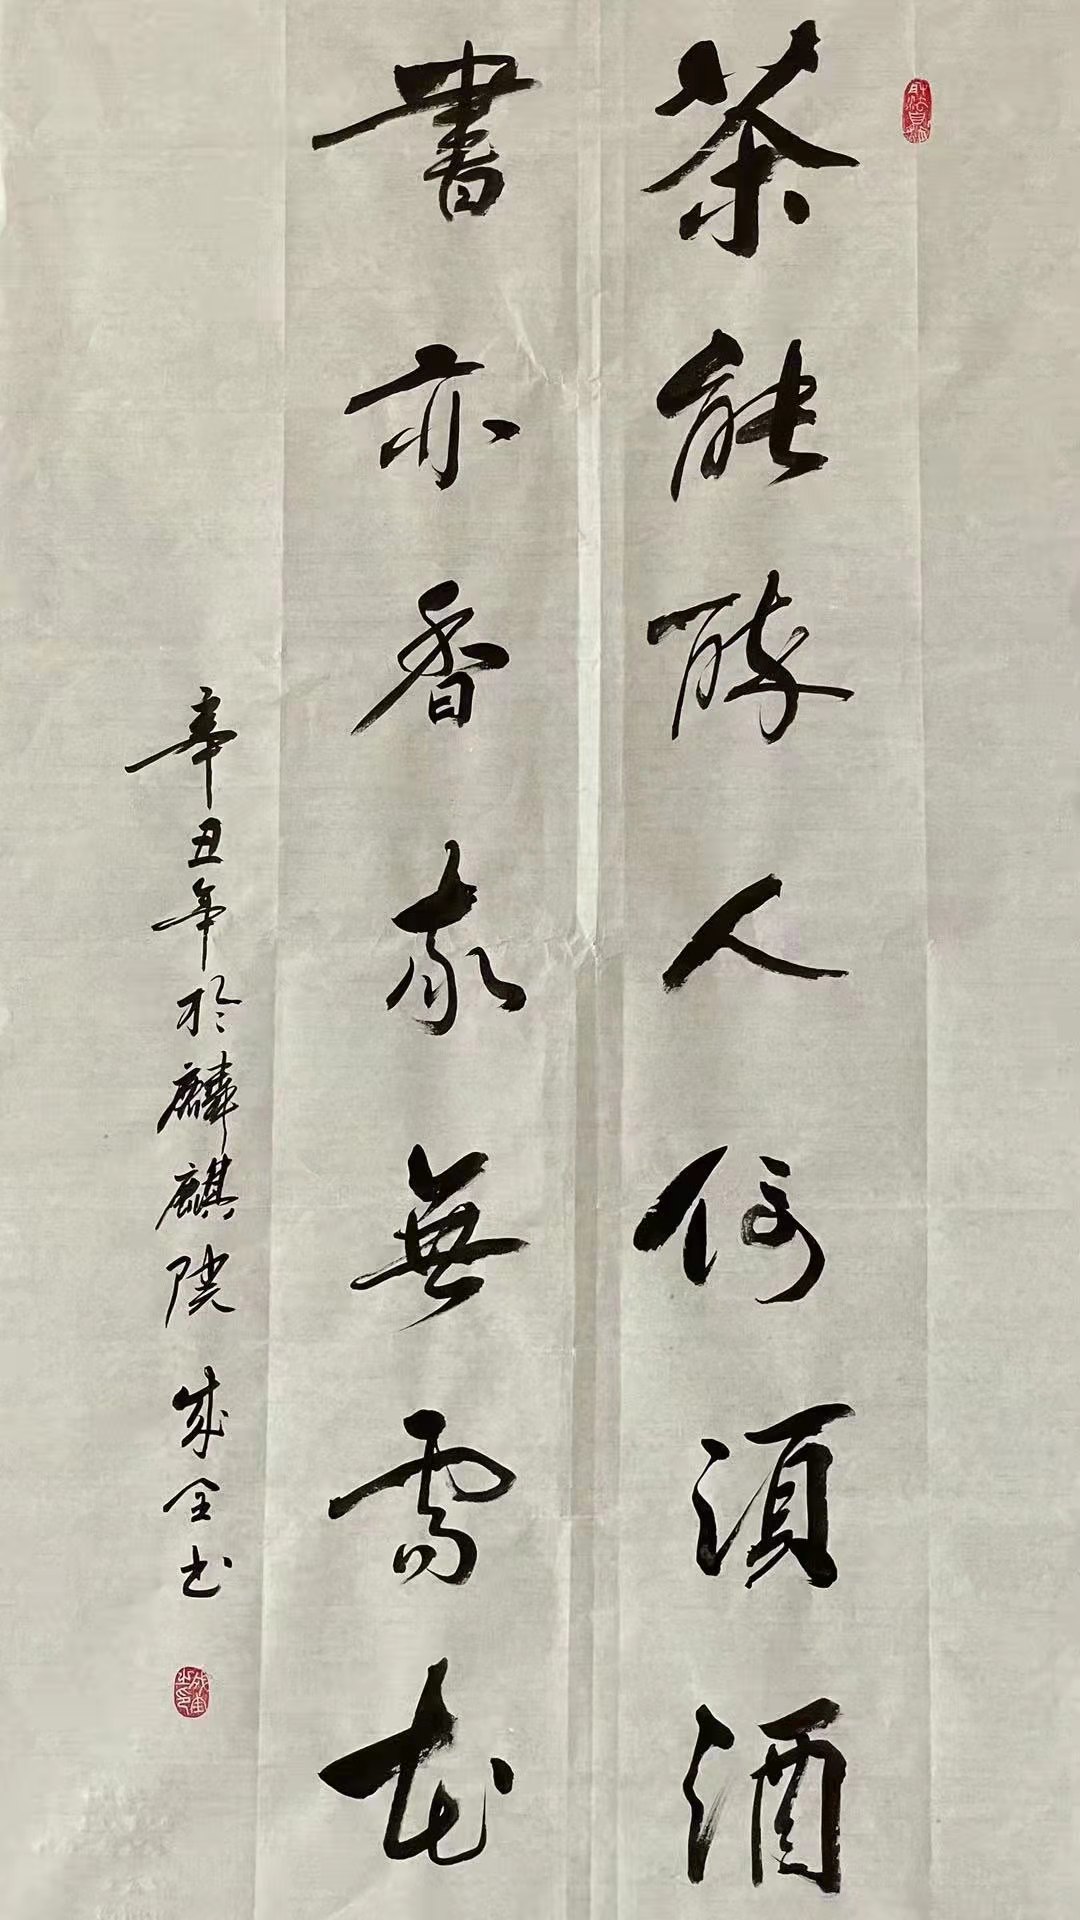 茶能醉人何須酒
書亦香我無需花
辛丑年於麟麒陝 成全书